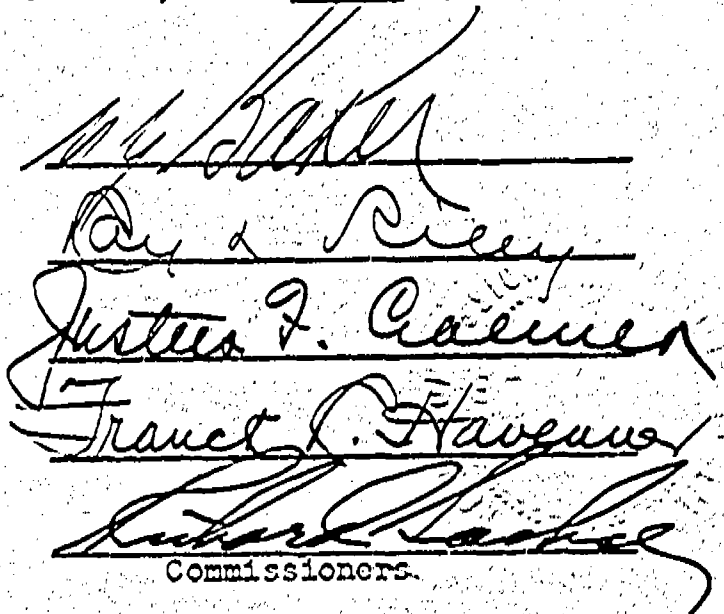 Baker
Ray L Riley
Justus F. Craemer
Franck R. Havenner
Richard Sachse
Commissioners.